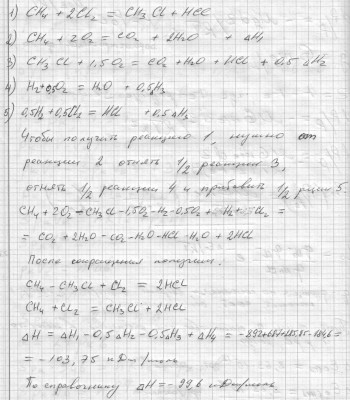 1) CH4 + 2Cl2 = CH3Cl + HCl
2) CH4 + 2O2 = CO2 + 2H2O + ΔH1
3) CH3Cl + 1,5O2 = CO2 + H2O + HCl + 0,5 ΔH2
4) H2 + 0,5O2 = H2O + 0,5H3
5) 0,5H2 + 0,5Cl2 = HCl + 0,5ΔH3
Чтобы получить реакцию 1, нужно от
реакции 2 отнять 1/2 реакции 3,
отнять 1/2 реакции 4 и прибавить 1/2 5.
CH4 + 2O2 - CH3Cl - 1,5O2 - H2 - 0,5O2 + H2 + Cl2 =
= CO2 + 2H2O - CO2 - H2O - HCl - H2O + 2HCl
После сокращения получим:
CH4 - CH3Cl + Cl2 = 2HCl
CH4 + Cl2 = CH3Cl + 2HCl
ΔH = ΔH1 - 0,5ΔH2 - 0,5ΔH3 + ΔH4 =
= -103,75 кДж/моль
По справочнику ΔH = -99,6 кДж/моль